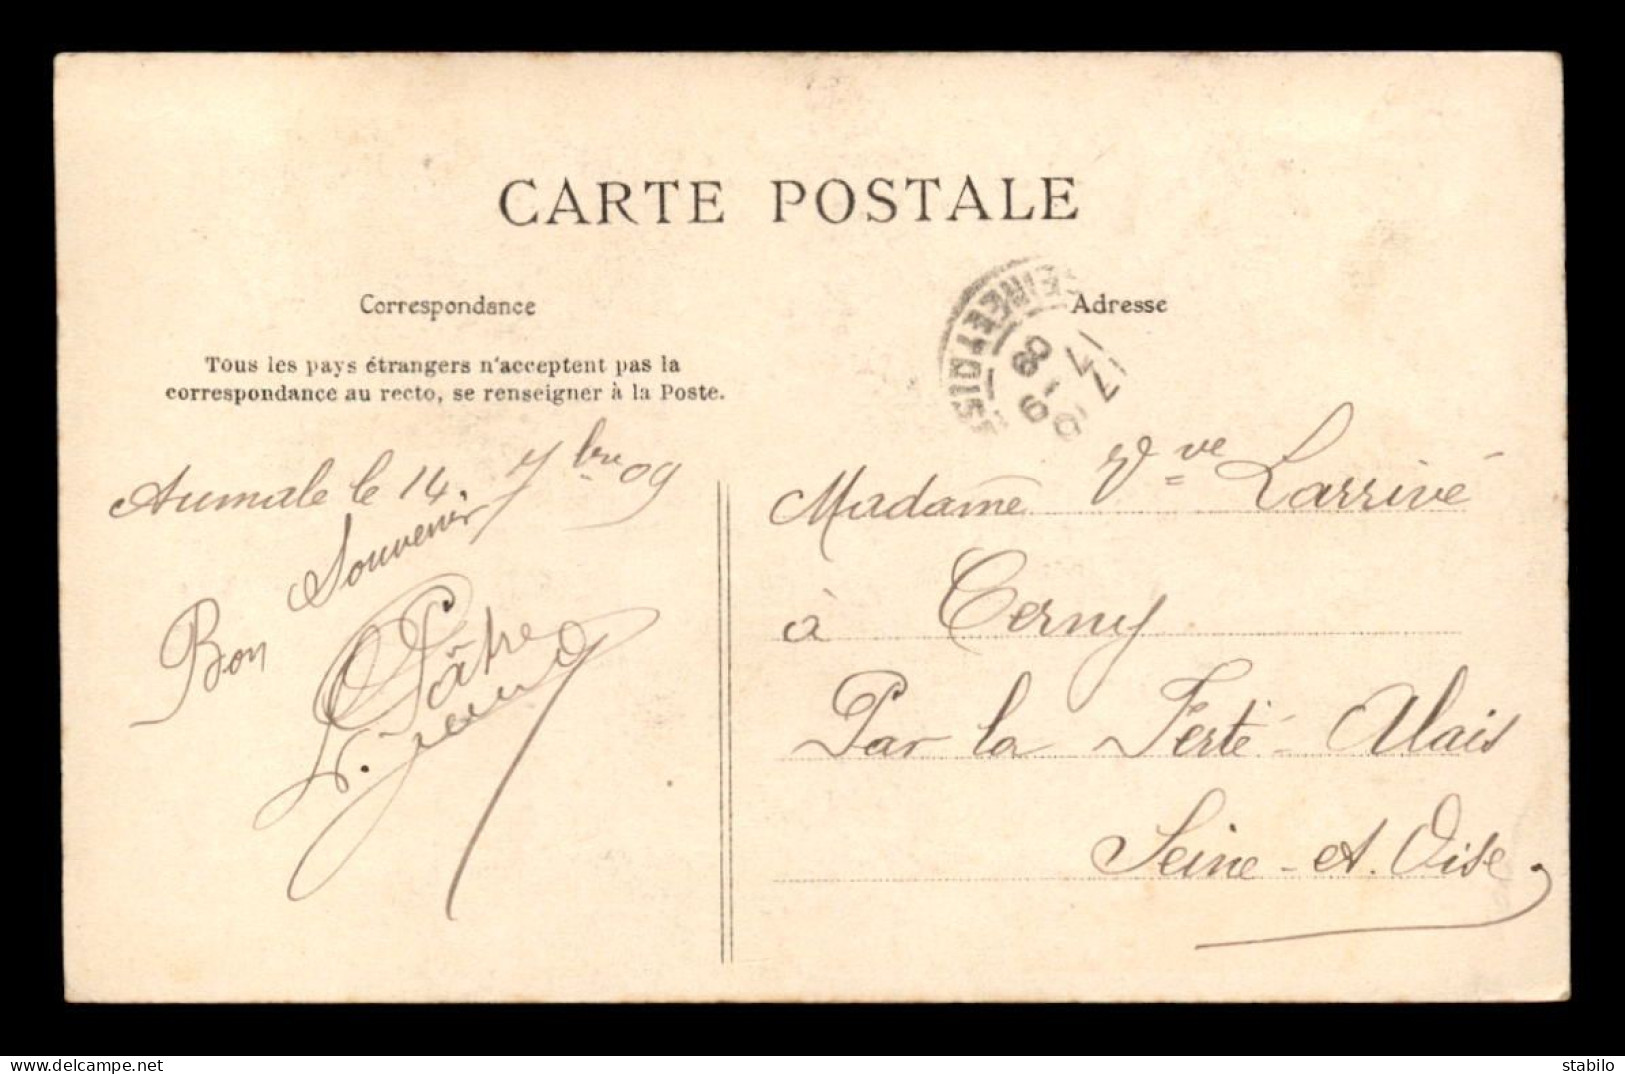 CARTE POSTALE
Correspondance
Tous les pays étrangers n'acceptent pas la
correspondance au recto, se renseigner à la Poste.
Aumale le 14. 7bre 09
Bon Souvenir
Pâtre
Adresse
SEINE ET OISE
17
-9
09
Madame Vve Larrivé
à Cerny
Par la Ferté-Alais
Seine-et-Oise
delcampe.net
stabilo